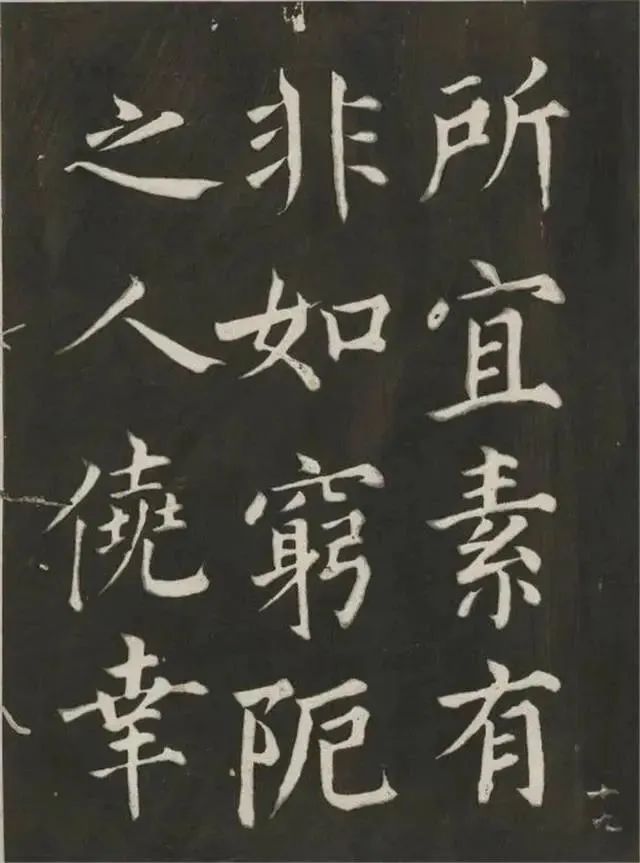 所宜素有
非如窮阨
之人僥幸
十九